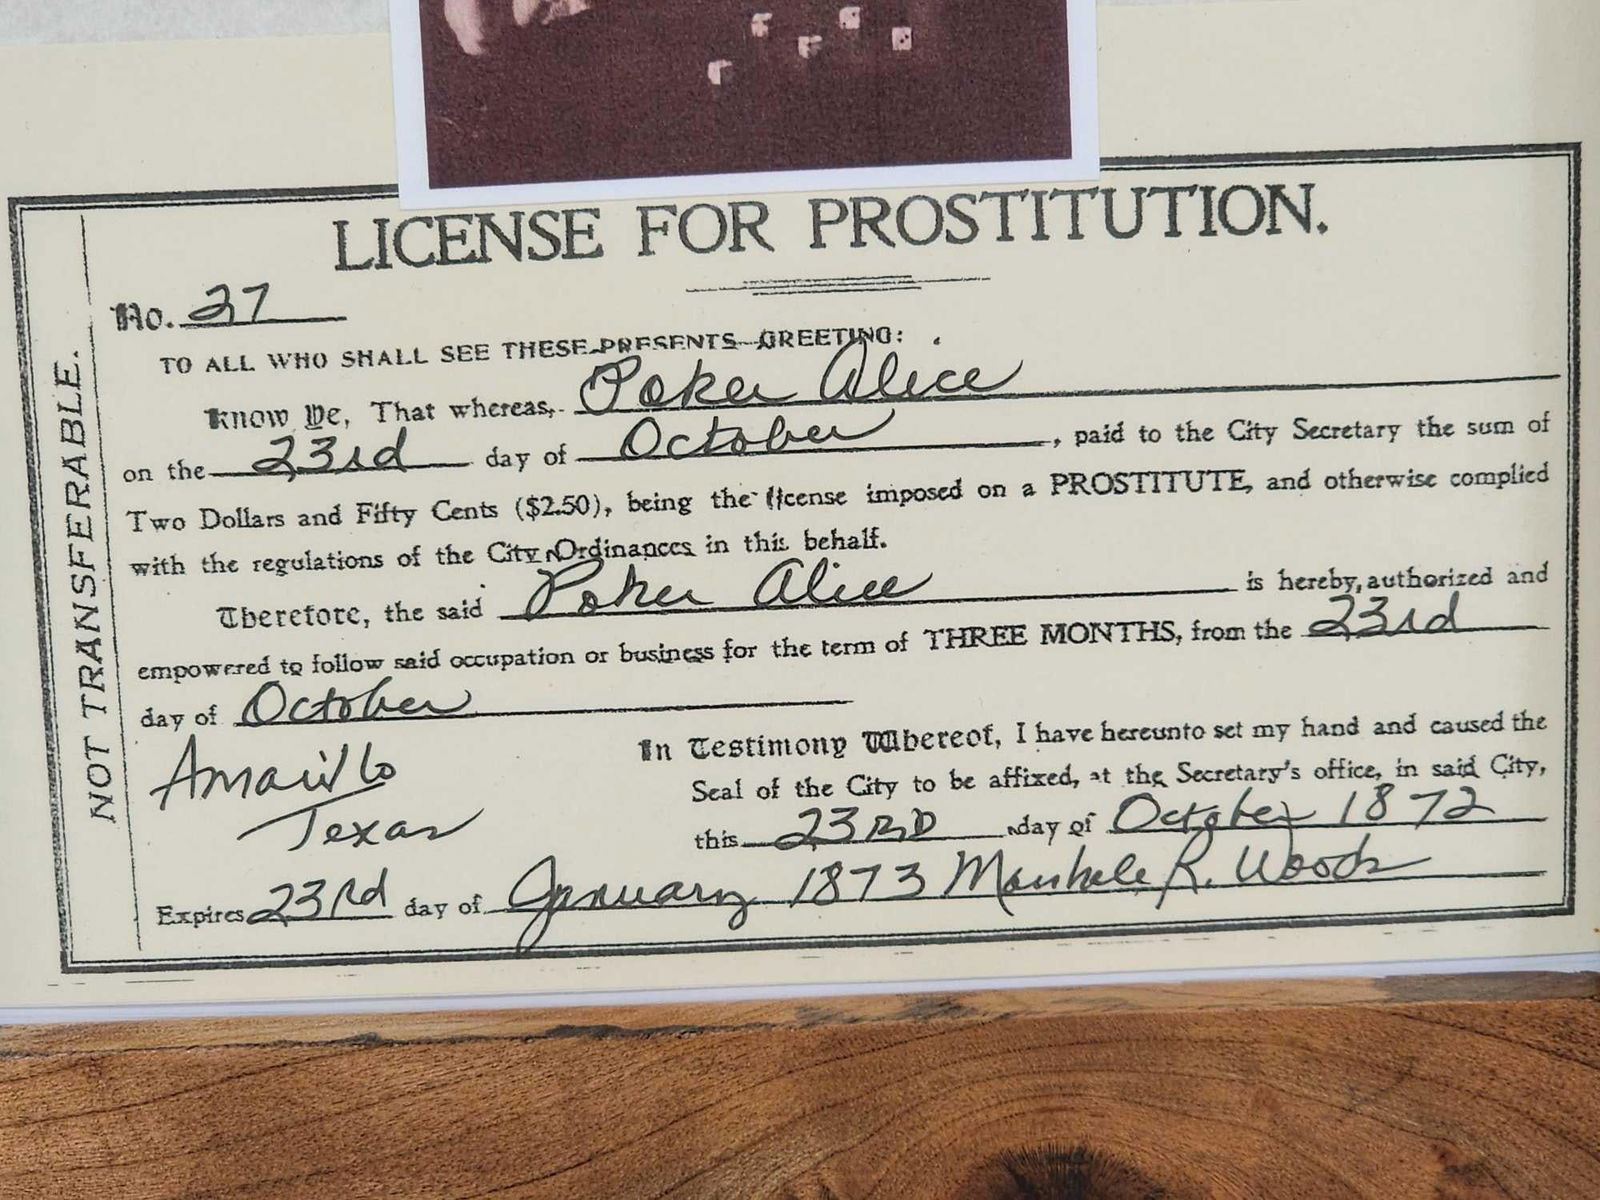 LICENSE FOR PROSTITUTION.
No. 27
TO ALL WHO SHALL SEE THESE PRESENTS—GREETING:
Know Ye, That whereas, Poker Alice
on the 23rd day of October, paid to the City Secretary the sum of
Two Dollars and Fifty Cents ($2.50), being the license imposed on a PROSTITUTE, and otherwise complied
with the regulations of the City Ordinances in this behalf.
Therefore, the said Poker Alice is hereby, authorized and
empowered to follow said occupation or business for the term of THREE MONTHS, from the 23rd
day of October
In Testimony Whereof, I have hereunto set my hand and caused the
Seal of the City to be affixed, at the Secretary's office, in said City,
this 23RD day of October 1872
Amarillo
Texas
Expires 23rd day of January 1873 R. Woods
NOT TRANSFERABLE.